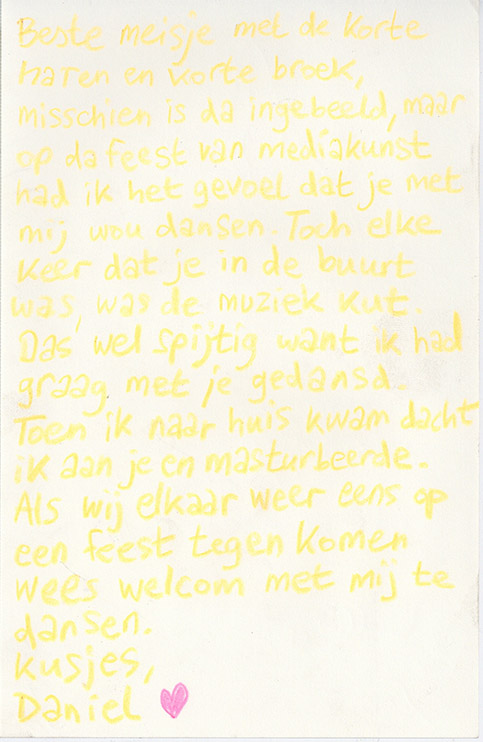 Beste meisje met de korte
haren en korte broek,
misschien is da ingebeeld, maar
op da feest van mediakunst
had ik het gevoel dat je met
mij wou dansen. Toch elke
keer dat je in de buurt
was, was de muziek kut.
Das wel spijtig want ik had
graag met je gedansd.
Toen ik naar huis kwam dacht
ik aan je en masturbeerde.
Als wij elkaar weer eens op
een feest tegen komen
wees welcom met mij te
dansen.
Kusjes,
Daniel